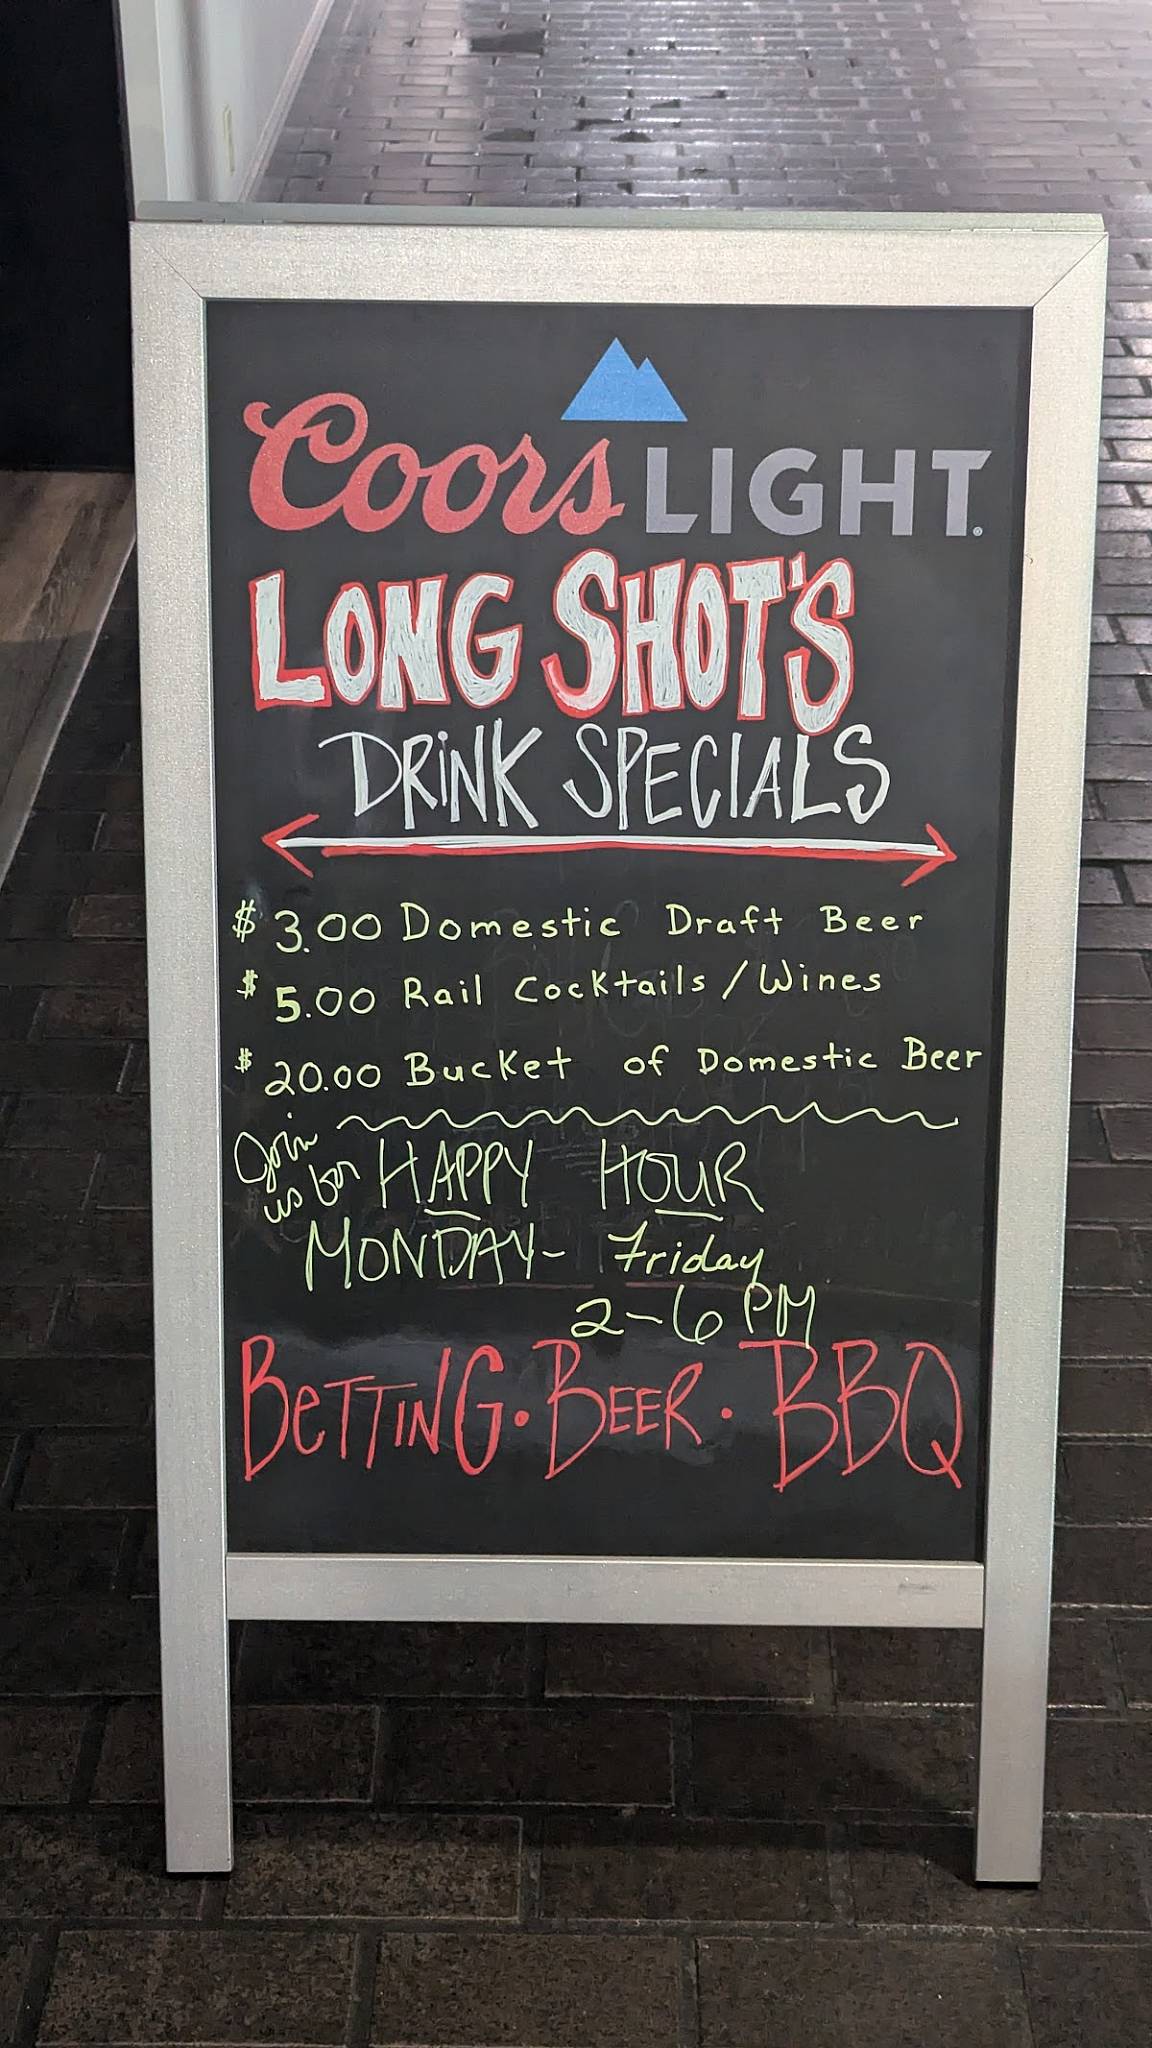 Coors LIGHT®
LONG SHOT'S
DRiNK SPECIALS
$3.00 Domestic Draft Beer
$5.00 Rail Cocktails/Wines
$20.00 Bucket of Domestic Beer
Join us for HAPPY HOUR
MONDAY- Friday
2-6 PM
BeTTiNG • BEER • BBQ